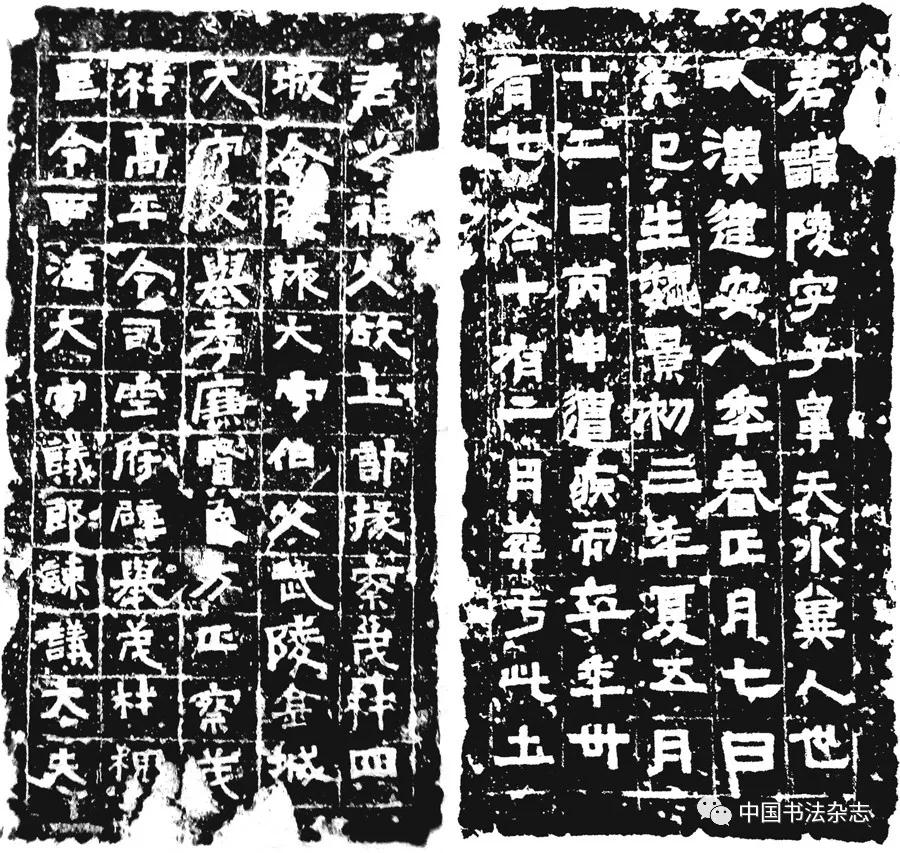 君諱陵字子皐天水冀人也
以漢建安八年春正月七日
癸巳生魏景初三年夏五月
十二日丙申遭疾而卒年卅
有七冬十有二月葬于此土
君之祖父故上計掾察茂材四
城令大守伯父武陵金城
大守父舉孝廉賢良方正察茂
材高平令司空府辟舉茂材祤
邑令西海大守議郎諫議大夫
中国书法杂志